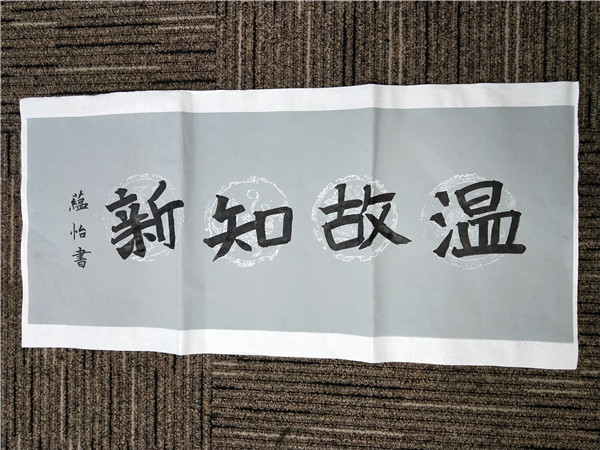 温故知新
蕴怡書